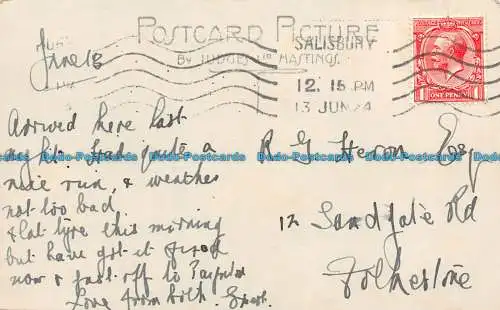 POSTCARD PICTURE
BY JUDGES HASTINGS
SALISBURY
12.15 PM
13 JUN 24
ONE PENNY
June 13
Arrived here last
night. Had quite a
nice run, & weather
not too bad.
Flat tyre this morning
but have got it fixed
now & just off to
Love from both.
R G Heron Esq
12 Sandgate Rd
Folkestone
Dodo-Postcards Dodo-Postcards Dodo-Postcards